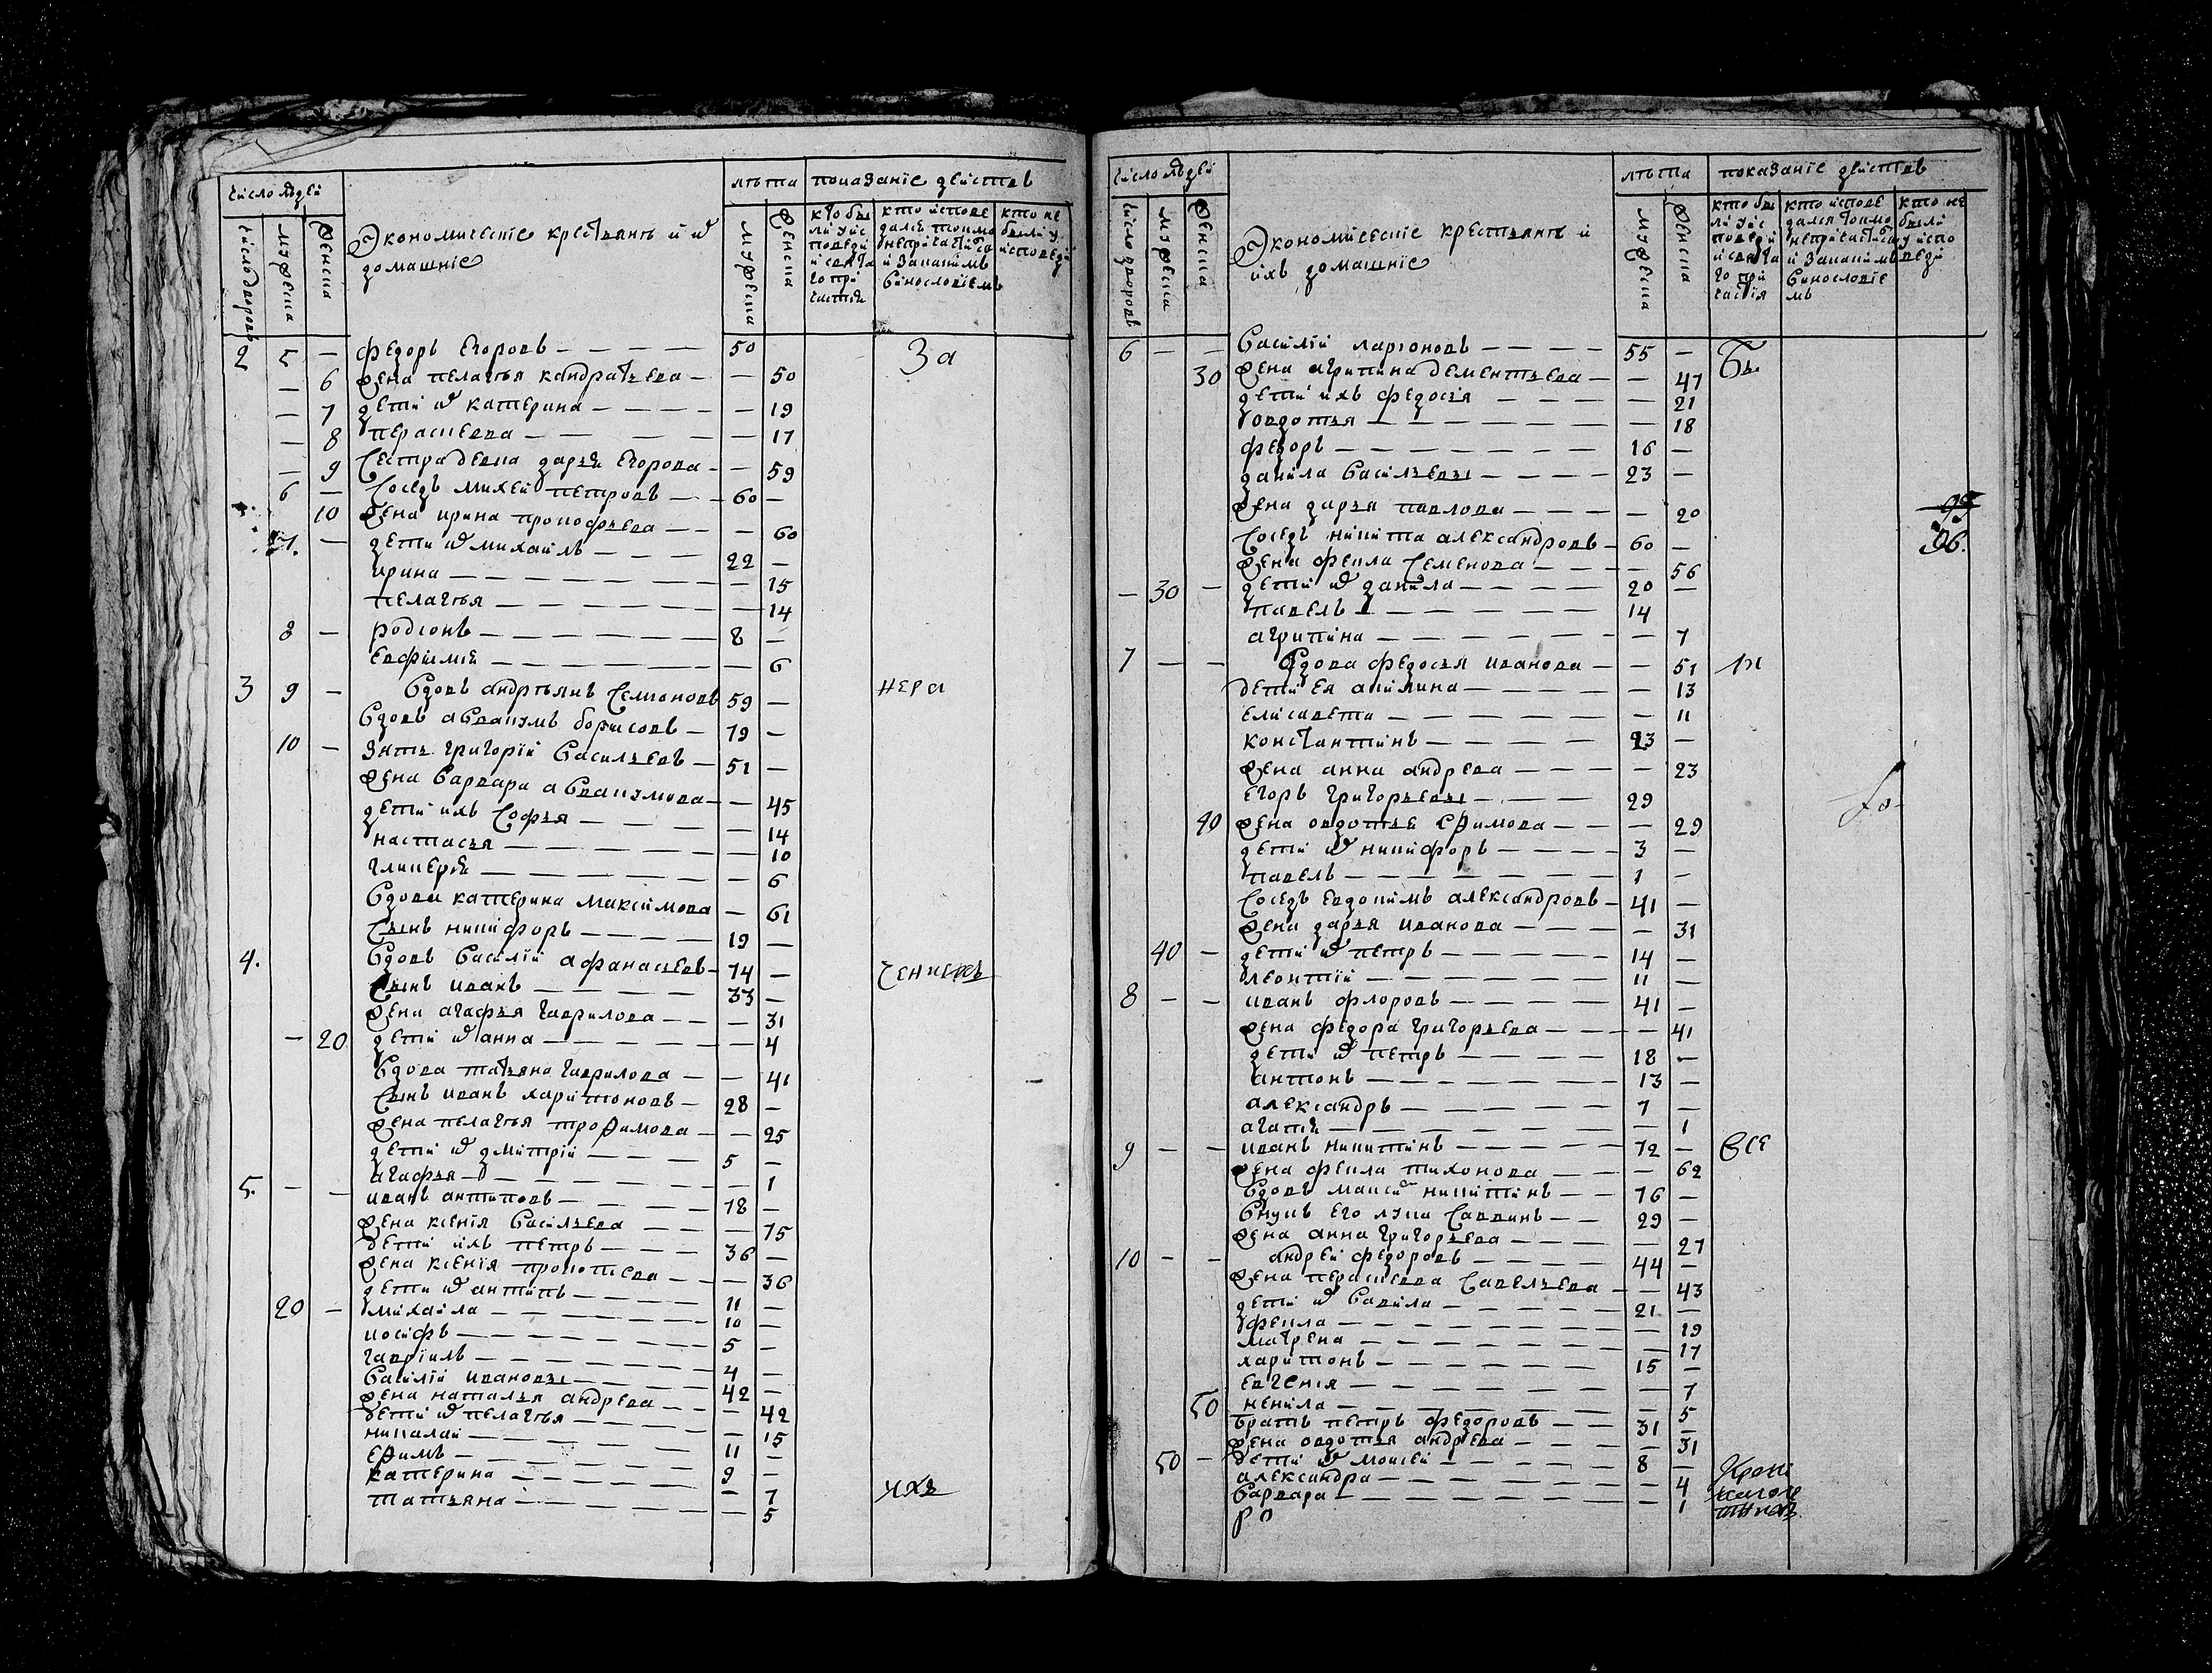 число людей
лѣта показанїе дѣиствъ
число дворовъ мужеска женска
Экономическїе крестьянѣ и и
домашнїе
мужеска женска
кто бы ли у ис поведи и свята го при частїя
кто испове дался токмо не причастился и за каким виносло вїемъ
кто не были у исповеди
2 5 — федоръ егоровъ — 50 За
— 6 жена пелагѣя кандратьева — — 50
— 7 дети и катерина — — 19
— 8 пераскевва — — 17
— 9 Сестра девка дарья егорова — — 59
6 — Соседъ михеи петровъ — 60 —
10 жена ирина прокофьева — — 60
7. — дети и михаилъ — 22 —
ирина — — 15
пелагѣя — — 14
8 — родїонъ — 8 —
евфимїя — — 6
3 9 — вдовъ андрѣянъ Семїоновъ 59 — нера
вдовъ аввакумъ борисовъ — 79 —
10 — зять григорїй васильевъ — 51 —
жена варвара аввакумова — — 45
дети ихъ Софья — — 14
настасья — — 10
гликерїя — — 6
вдова катерина максимова — 61
Сынъ никифоръ — 19 —
4. вдовъ василїй афанасьевъ — 74 —
Сынъ иванъ — 33 —
жена агафья гаврилова — — 31
— 20 дети и анна — — 4
вдова татьяна гаврилова — — 41
Сынъ иванъ харитоновъ — 28 —
жена пелагѣя трофимова — — 25
дети и дмитрїй — 5 —
агафья — — 1
5. — — иванъ антиповъ — 78 —
жена ксенїя васильева — — 75
дети ихъ петръ — 36 —
жена ксенїя прокопїева — — 36
дети и антипъ — 11 —
20 — михайла — 10 —
иосифъ — 5 —
гаврїилъ — 4 —
василїй ивановъ — 42 —
жена наталья андреева — — 42
дети и пелагѣя — — 15
николай — 11 —
ефимъ — 9 —
катерина — — 7
татьяна — — 5
число людей
лѣта показанїе дѣиствъ
число дворовъ мужеска женска
Экономическїе крестьянѣ и
ихъ домашнїе
мужеска женска
кто бы ли у ис поведи и свята го при частїя
кто испове дался токмо не причастился и за каким виносло вїемъ
кто не были у испо веди
6 — — василїй ларїоновъ — 55 — бы
30 жена агрипина дементьева — — 47
дети ихъ федосья — — 21
овдотья — — 18
федоръ — 16 —
данила васильевъ — 23 —
жена дарья павлова — — 20
96.
Соседъ никита александровъ — 60 —
жена фекла Семенова — — 56
— 30 — дети и данила — 20 —
павелъ — 14
агрипина — — 7
7 — — вдова федосья иванова — — 51 ли
дети ея акилина — — 13
елисавета — — 11
константинъ — 23 —
жена анна андрева — — 23
егоръ григорьевъ — 29
40 жена овдотья ефимова — — 29
дети и никифоръ — 3 —
павелъ — 1 —
Соседъ евдокимъ александровъ — 41 —
жена дарья иванова — — 31
40 — дети и петръ — 14 —
леонтїй — 11 —
8 — — иванъ флоровъ — 41 —
жена федора григорьева — — 41
дети и петръ — 18 —
антонъ — 13 —
александръ — 7 —
агапїя — — 1
9 — — иванъ никитинъ — 72 — все
жена фекла тихонова — — 62
вдовъ максим никитинъ — 76 —
внукъ его лука Саввинъ — 29 —
жена анна григорьева — — 27
10 — — андрей федоровъ — 44 —
жена пераскевва Савельева — — 43
дети и вавила — 21 —
фекла — — 19
матрена — — 17
харитонъ — 15 —
евгенїя — — 7
50 ненила — — 5
братъ петръ федоровъ — 31 —
жена овдотья андрева — — 31
50 — дети и моисей — 8 —
александра — — 4
варвара — — 1